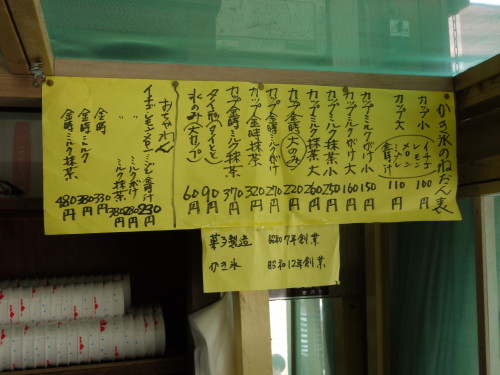 かき氷のねだん表
カップ小 100円
カップ大 110円
イチゴ
レモン
メロン
ミゾレ
金時汁
カップミルクがけ小 150円
カップミルクがけ大 160円
カップミルク抹茶小 250円
カップミルク抹茶大 260円
カップ金時(大のみ) 220円
カップ金時ミルク 270円
カップ金時抹茶 320円
カップ金時ミルク抹茶 370円
タイ焼(タイムと) 90円
氷のみ(大カップ) 60円
おちゃわん
イチゴ、レモン、メロン、ミゾレ、金時汁 230円
〃 ミルクがけ 280円
〃 ミルク抹茶 380円
金時 330円
金時ミルク 380円
金時ミルク抹茶 480円
菓子製造 昭和7年創業
かき氷 昭和12年創業